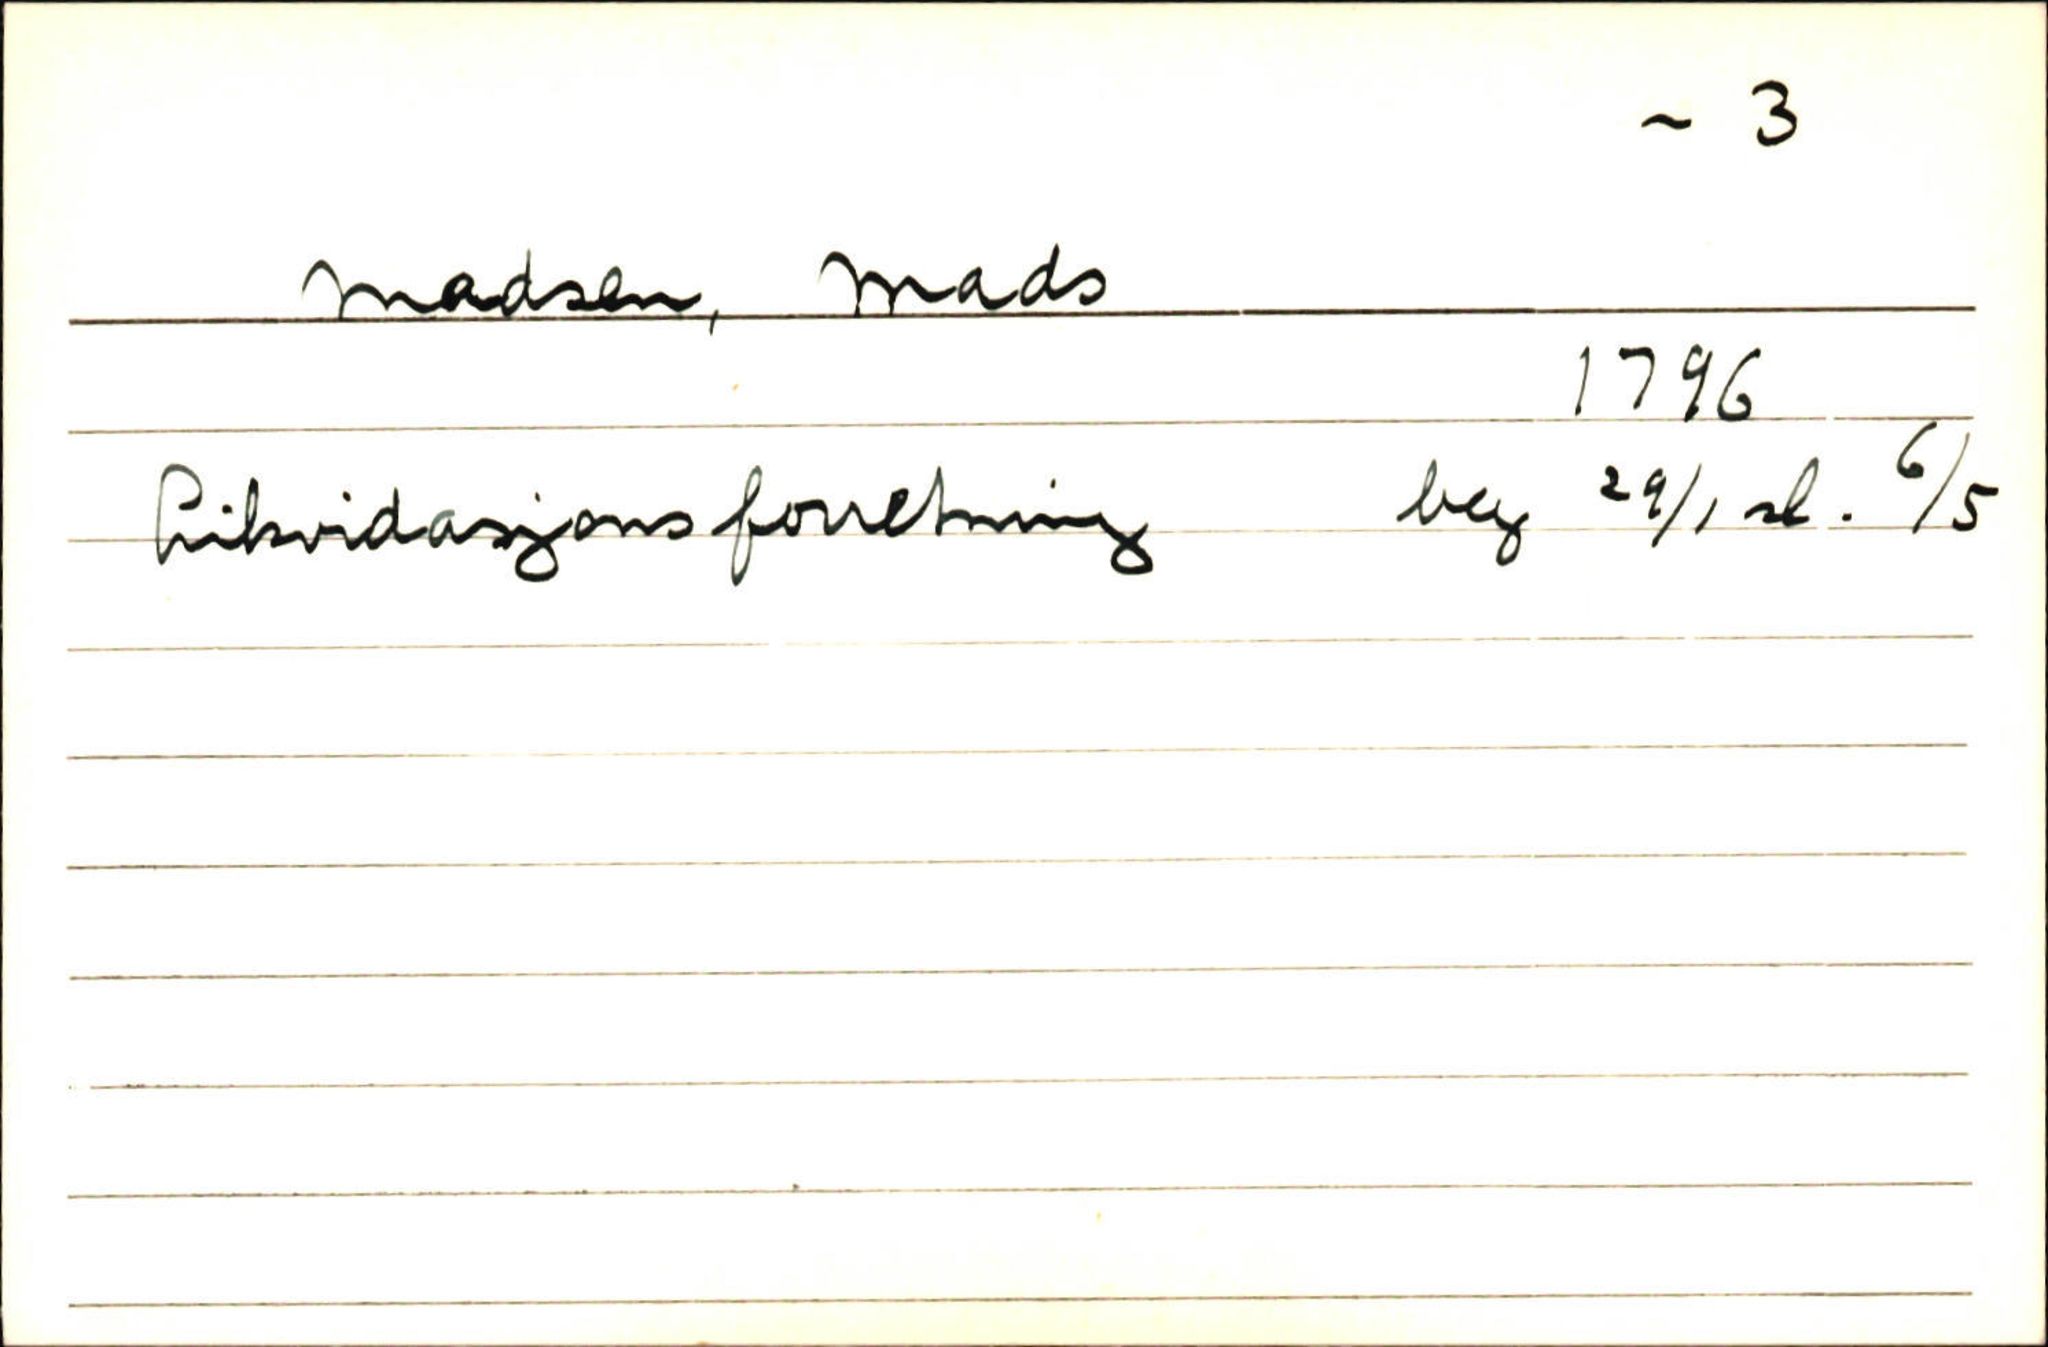 ~ 3
Madsen, Mads
1796
Likvidasjonsforretning beg 29/1 sl. 6/5